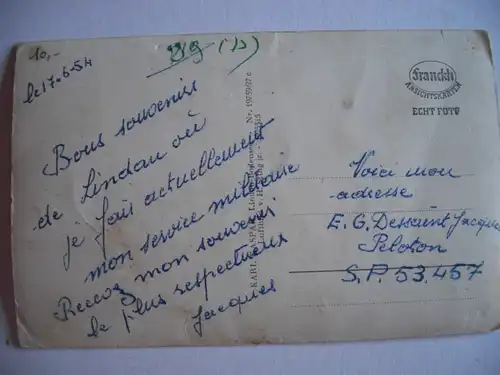 10,-
le 17-6-54
Bons souvenirs
de Lindau où
je fais actuellement
mon service militaire
Recevez mon souvenir
le plus respectueux
Jacques
Franckh
ANSICHTSKARTEN
ECHT FOTO
Voici mon
adresse
E.G. Dessaint Jacques
Peloton
S.P. 53.457